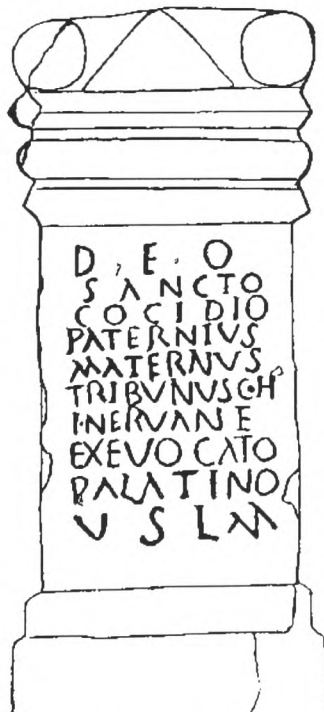 D , E . O
SANCTO
COCIDIO
PATERNIVS
MATERNVS
TRIBVNVSCH
I·NERVANE
EXEVOCATO
PALATINO
V S L M